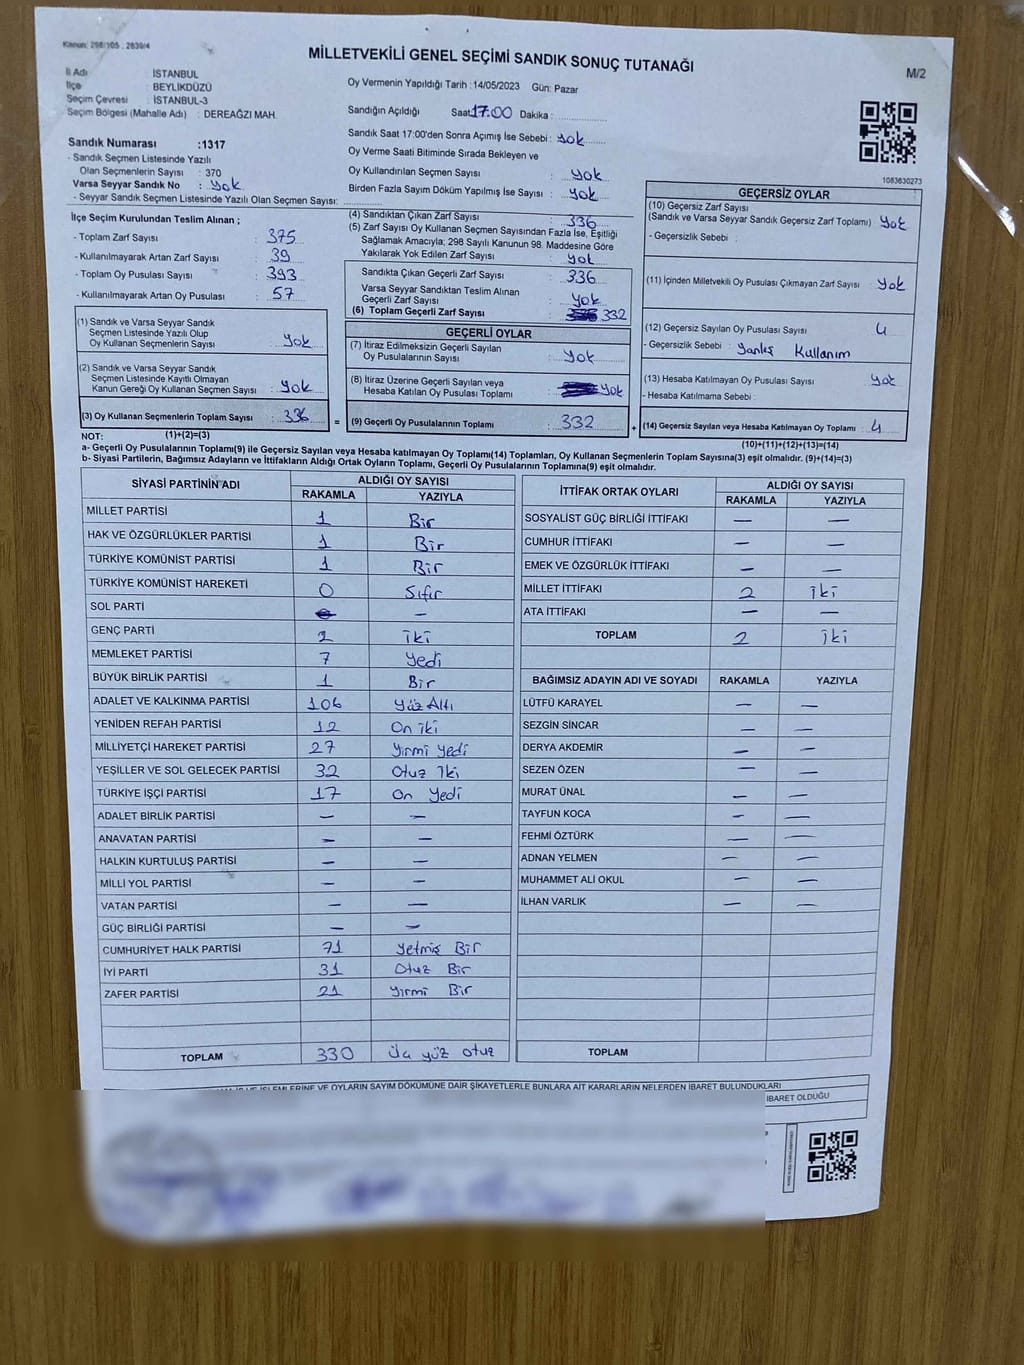 Kanun: 298/105 , 2839/4
MİLLETVEKİLİ GENEL SEÇİMİ SANDIK SONUÇ TUTANAĞI
M/2
İl Adı : İSTANBUL
İlçe : BEYLİKDÜZÜ
Seçim Çevresi : İSTANBUL-3
Seçim Bölgesi (Mahalle Adı) : DEREAĞZI MAH.
Oy Vermenin Yapıldığı Tarih : 14/05/2023 Gün: Pazar
Sandığın Açıldığı Saat 17:00 Dakika :
Sandık Saat 17:00'den Sonra Açımış İse Sebebi : yok
Oy Verme Saati Bitiminde Sırada Bekleyen ve
Oy Kullandırılan Seçmen Sayısı : yok
Birden Fazla Sayım Döküm Yapılmış İse Sayısı : yok
1083630273
Sandık Numarası : 1317
- Sandık Seçmen Listesinde Yazılı
Olan Seçmenlerin Sayısı : 370
Varsa Seyyar Sandık No : yok
- Seyyar Sandık Seçmen Listesinde Yazılı Olan Seçmen Sayısı:
İlçe Seçim Kurulundan Teslim Alınan ;
- Toplam Zarf Sayısı : 375
- Kullanılmayarak Artan Zarf Sayısı : 39
- Toplam Oy Pusulası Sayısı : 393
- Kullanılmayarak Artan Oy Pusulası : 57
(1) Sandık ve Varsa Seyyar Sandık
Seçmen Listesinde Yazılı Olup
Oy Kullanan Seçmenlerin Sayısı : yok
(2) Sandık ve Varsa Seyyar Sandık
Seçmen Listesinde Kayıtlı Olmayan
Kanun Gereği Oy Kullanan Seçmen Sayısı : yok
(3) Oy Kullanan Seçmenlerin Toplam Sayısı : 336 =
(1)+(2)=(3)
(4) Sandıktan Çıkan Zarf Sayısı : 336
(5) Zarf Sayısı Oy Kullanan Seçmen Sayısından Fazla İse, Eşitliği
Sağlamak Amacıyla; 298 Sayılı Kanunun 98. Maddesine Göre
Yakılarak Yok Edilen Zarf Sayısı : yok
Sandıkta Çıkan Geçerli Zarf Sayısı : 336
Varsa Seyyar Sandıktan Teslim Alınan
Geçerli Zarf Sayısı : yok
(6) Toplam Geçerli Zarf Sayısı : 332
GEÇERLİ OYLAR
(7) İtiraz Edilmeksizin Geçerli Sayılan
Oy Pusulalarının Sayısı : yok
(8) İtiraz Üzerine Geçerli Sayılan veya
Hesaba Katılan Oy Pusulası Toplamı : yok
(9) Geçerli Oy Pusulalarının Toplamı : 332 +
GEÇERSİZ OYLAR
(10) Geçersiz Zarf Sayısı
(Sandık ve Varsa Seyyar Sandık Geçersiz Zarf Toplamı) : yok
- Geçersizlik Sebebi :
(11) İçinden Milletvekili Oy Pusulası Çıkmayan Zarf Sayısı : yok
(12) Geçersiz Sayılan Oy Pusulası Sayısı : 4
- Geçersizlik Sebebi : yanlış Kullanım
(13) Hesaba Katılmayan Oy Pusulası Sayısı : yok
- Hesaba Katılmama Sebebi :
(14) Geçersiz Sayılan veya Hesaba Katılmayan Oy Toplamı : 4
(10)+(11)+(12)+(13)=(14)
NOT:
a- Geçerli Oy Pusulalarının Toplamı(9) ile Geçersiz Sayılan veya Hesaba katılmayan Oy Toplamı(14) Toplamları, Oy Kullanan Seçmenlerin Toplam Sayısına(3) eşit olmalıdır. (9)+(14)=(3)
b- Siyasi Partilerin, Bağımsız Adayların ve İttifakların Aldığı Ortak Oyların Toplamı, Geçerli Oy Pusulalarının Toplamına(9) eşit olmalıdır.
SİYASİ PARTİNİN ADI ALDIĞI OY SAYISI
RAKAMLA YAZIYLA
MİLLET PARTİSİ 1 Bir
HAK VE ÖZGÜRLÜKLER PARTİSİ 1 Bir
TÜRKİYE KOMÜNİST PARTİSİ 1 Bir
TÜRKİYE KOMÜNİST HAREKETİ 0 Sıfır
SOL PARTİ —
GENÇ PARTİ 2 iki
MEMLEKET PARTİSİ 7 yedi
BÜYÜK BİRLİK PARTİSİ 1 Bir
ADALET VE KALKINMA PARTİSİ 106 yüz Altı
YENİDEN REFAH PARTİSİ 12 On iki
MİLLİYETÇİ HAREKET PARTİSİ 27 yirmi yedi
YEŞİLLER VE SOL GELECEK PARTİSİ 32 Otuz İki
TÜRKİYE İŞÇİ PARTİSİ 17 On yedi
ADALET BİRLİK PARTİSİ — —
ANAVATAN PARTİSİ — —
HALKIN KURTULUŞ PARTİSİ — —
MİLLİ YOL PARTİSİ — —
VATAN PARTİSİ — —
GÜÇ BİRLİĞİ PARTİSİ — —
CUMHURİYET HALK PARTİSİ 71 yetmiş Bir
İYİ PARTİ 31 Otuz Bir
ZAFER PARTİSİ 21 yirmi Bir
TOPLAM 330 yüz otuz
İTTİFAK ORTAK OYLARI ALDIĞI OY SAYISI
RAKAMLA YAZIYLA
SOSYALİST GÜÇ BİRLİĞİ İTTİFAKI — —
CUMHUR İTTİFAKI — —
EMEK VE ÖZGÜRLÜK İTTİFAKI — —
MİLLET İTTİFAKI 2 iki
ATA İTTİFAKI — —
TOPLAM 2 iki
BAĞIMSIZ ADAYIN ADI VE SOYADI RAKAMLA YAZIYLA
LÜTFÜ KARAYEL — —
SEZGİN SİNCAR — —
DERYA AKDEMİR — —
SEZEN ÖZEN — —
MURAT ÜNAL — —
TAYFUN KOCA — —
FEHMİ ÖZTÜRK — —
ADNAN YELMEN — —
MUHAMMET ALİ OKUL — —
İLHAN VARLIK — —
TOPLAM
OYLARIN SAYIM DÖKÜMÜNE DAİR ŞİKAYETLERLE BUNLARA AİT KARARLARIN NELERDEN İBARET BULUNDUKLARI
İBARET OLDUĞU